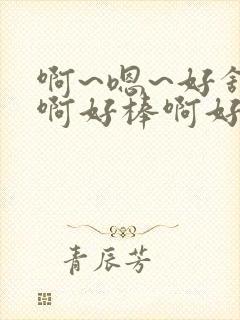 啊~嗯~好舒
啊好棒啊好
青辰芳